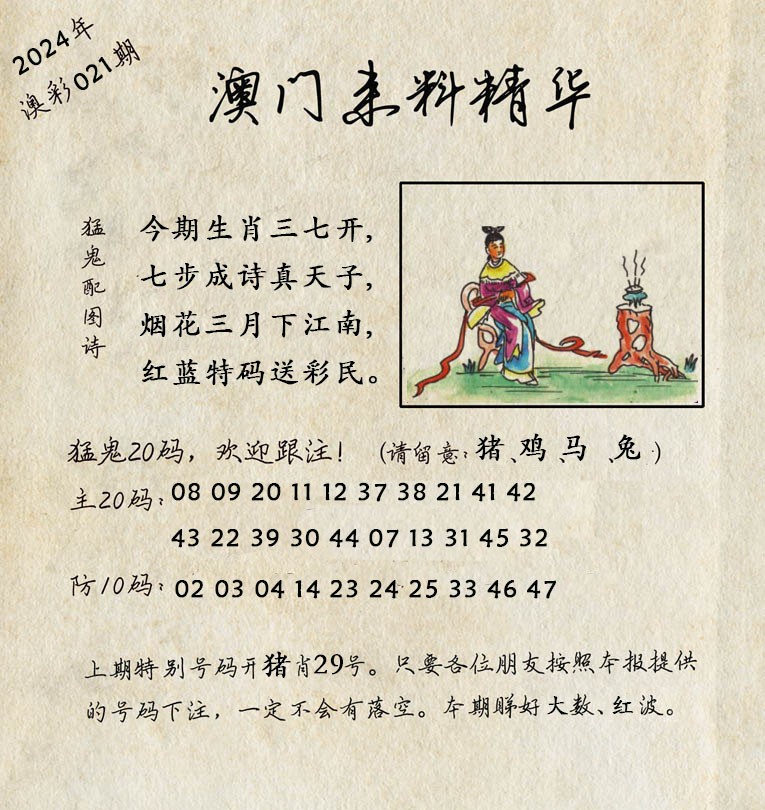 2024年
澳彩021期
澳门来料精华
猛鬼配图诗
今期生肖三七开，
七步成诗真天子，
烟花三月下江南，
红蓝特码送彩民。
猛鬼20码，欢迎跟注！（请留意：猪、鸡、马、兔）
主20码：08 09 20 11 12 37 38 21 41 42
43 22 39 30 44 07 13 31 45 32
防10码：02 03 04 14 23 24 25 33 46 47
上期特别号码开猪肖29号。只要各位朋友按照本报提供
的号码下注，一定不会有落空。本期睇好大数、红波。